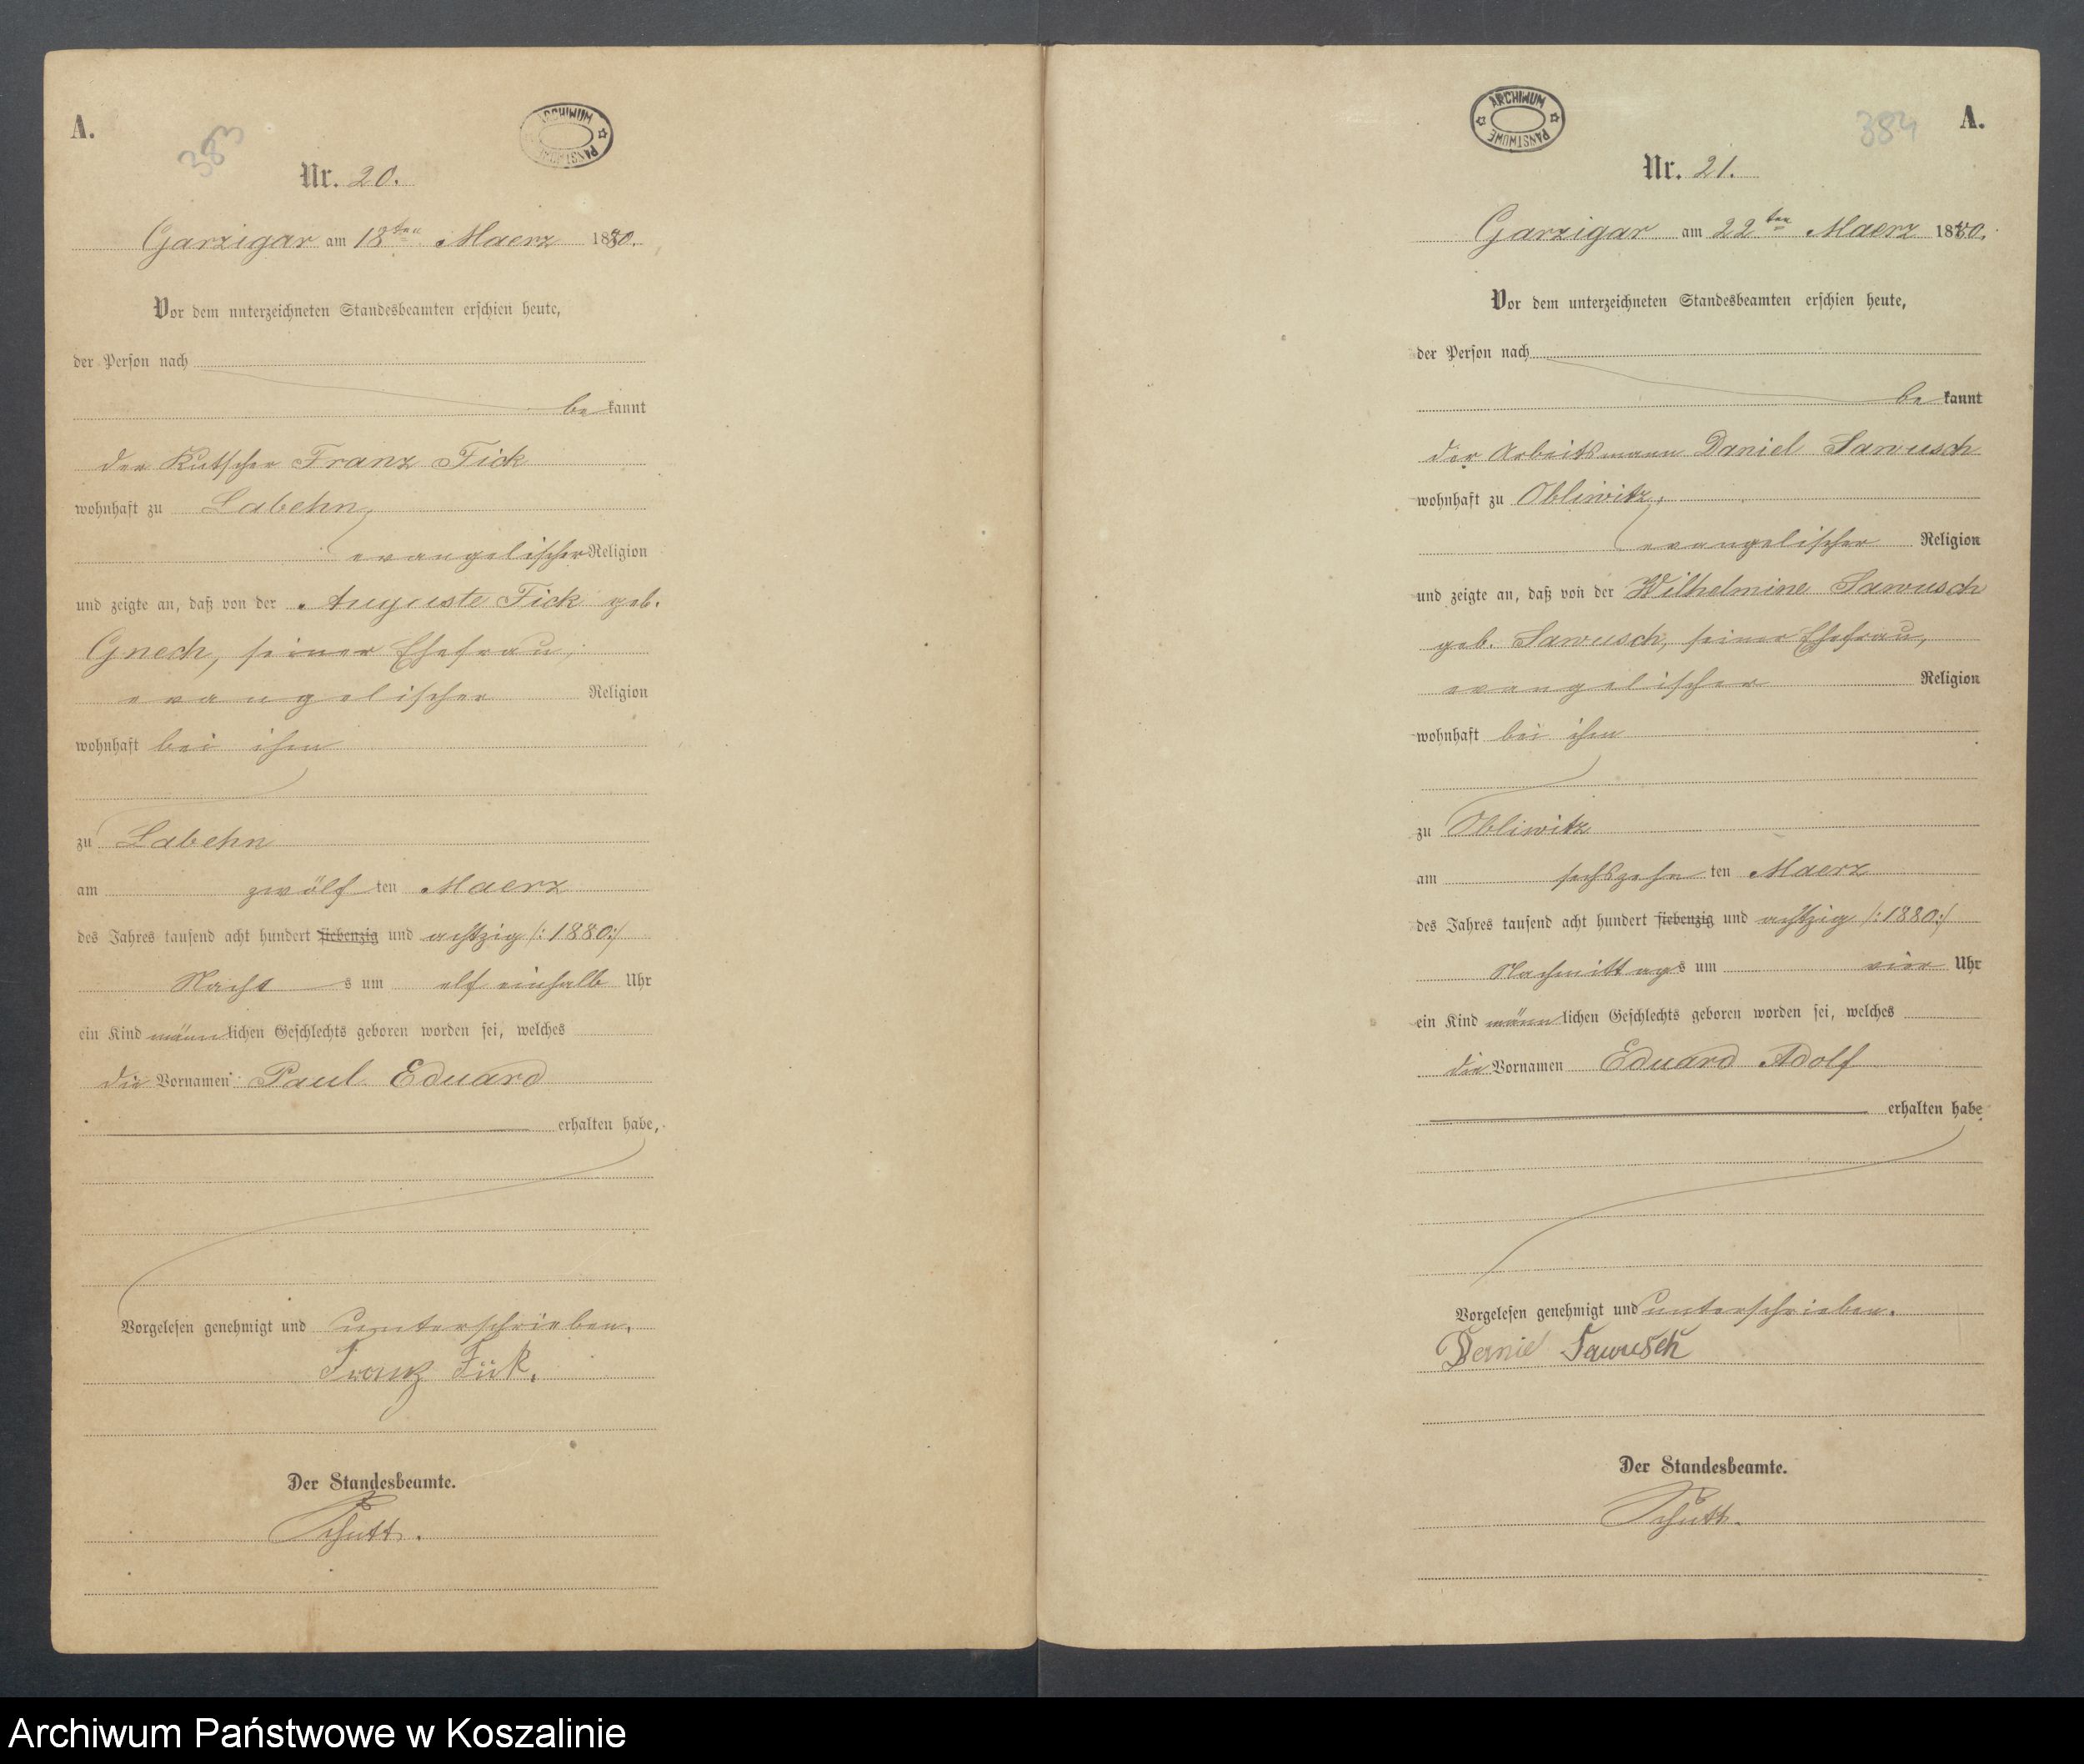 A.
383
ARCHIWUM PAŃSTWOWE
Nr. 20.
Garzigar am 18ten Maerz 1880.
Vor dem unterzeichneten Standesbeamten erschien heute,
der Person nach
bekannt
der Kutscher Franz Fick
wohnhaft zu Labehn,
evangelischer Religion
und zeigte an, daß von der Auguste Fick geb.
Gnech, seiner Ehefrau,
evangelischer Religion
wohnhaft bei ihm
zu Labehn
am zwölf ten Maerz
des Jahres tausend acht hundert siebenzig und achtzig /: 1880 :/
Nachts um elf einhalb Uhr
ein Kind männlichen Geschlechts geboren worden sei, welches
die Vornamen Paul Eduard
erhalten habe,
Vorgelesen genehmigt und unterschrieben.
Franz Fick.
Der Standesbeamte.
Schütt.
ARCHIWUM PAŃSTWOWE
384
A.
Nr. 21.
Garzigar am 22ten Maerz 1880.
Vor dem unterzeichneten Standesbeamten erschien heute,
der Person nach
bekannt
der Arbeitsmann Daniel Sawusch
wohnhaft zu Obliwitz,
evangelischer Religion
und zeigte an, daß von der Wilhelmine Sawusch
geb. Sawusch, seiner Ehefrau,
evangelischer Religion
wohnhaft bei ihm
zu Obliwitz
am sechszehn ten Maerz
des Jahres tausend acht hundert siebenzig und achtzig /: 1880 :/
Nachmittags um vier Uhr
ein Kind männlichen Geschlechts geboren worden sei, welches
die Vornamen Eduard Adolf
erhalten habe
Vorgelesen genehmigt und unterschrieben.
Daniel Sawusch
Der Standesbeamte.
Schütt.
Archiwum Państwowe w Koszalinie